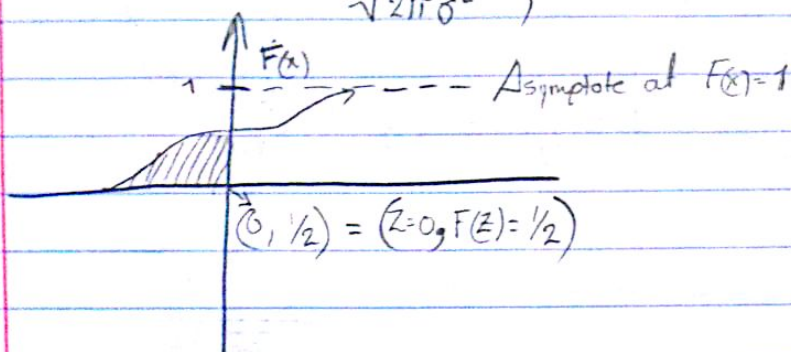 √2πσ )
F(x)
1 Asymptote at F(x)=1
(0, 1/2) = (Z=0, F(Z)=1/2)